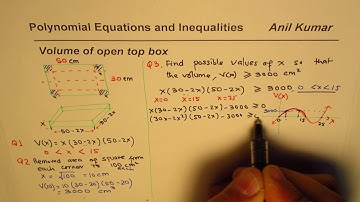 Polynomial Equations and Inequalities
Anil Kumar
Volume of open top box
50 cm
30 cm
x
50-2x
30-2x
Q1 V(x) = x(30-2x)(50-2x)
Q2 Removed area of square from each corner is 100 cm²
x = √100 = 10 cm
V(10) = 10(30-20)(50-20)
= 3000 cm³
Q3. Find possible values of x so that
the volume, V(x) ≥ 3000 cm³
x(30-2x)(50-2x) ≥ 3000, 0<x<15
x=0 x=15 x=25
x(30-2x)(50-2x)-3000 ≥ 0
(30x-2x²)(50-2x)-3000 ≥ 0
V(x)
3000
15
25